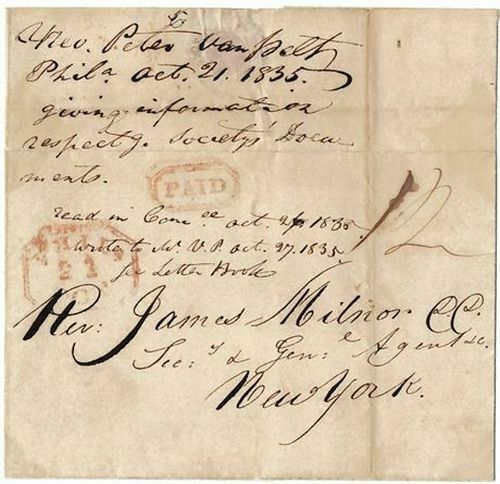 Rev. Peter Van Pelt
Phila. Oct. 21. 1835.
giving information
respectg. Society's Docu
ments.
PAID
read in Comee. Oct. 1835
wrote to Mr. V. P. Oct. 27. 1835.
see Letter Book
21
12
Rev: James Milnor D.D.
Sec:y & Gen:l Agent &c.
New York.